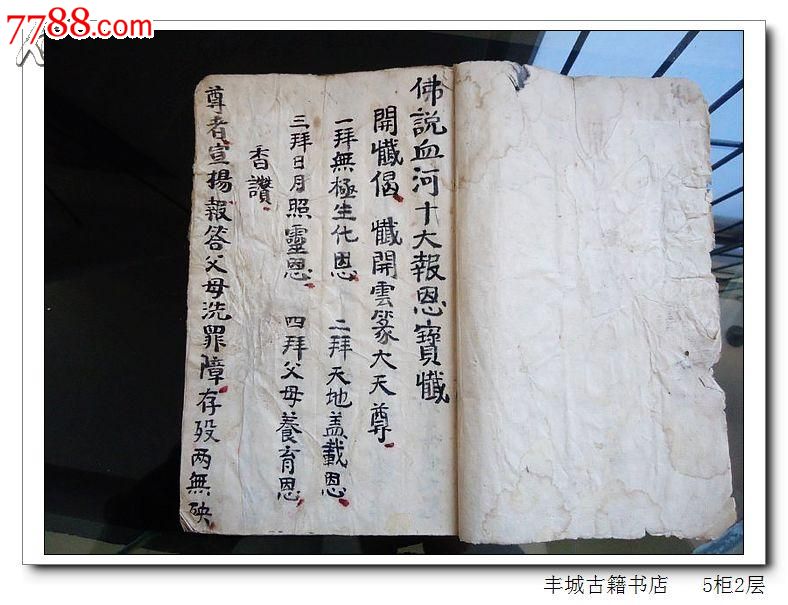 7788.com
佛說血河十大報恩寶懺
開懺偈 懺開雲篆大天尊
一拜無極生化恩 二拜天地盖載恩
三拜日月照靈恩 四拜父母養育恩
香讚
尊者宣揚報答父母洗罪障存殁两無殃
丰城古籍书店 5柜2层